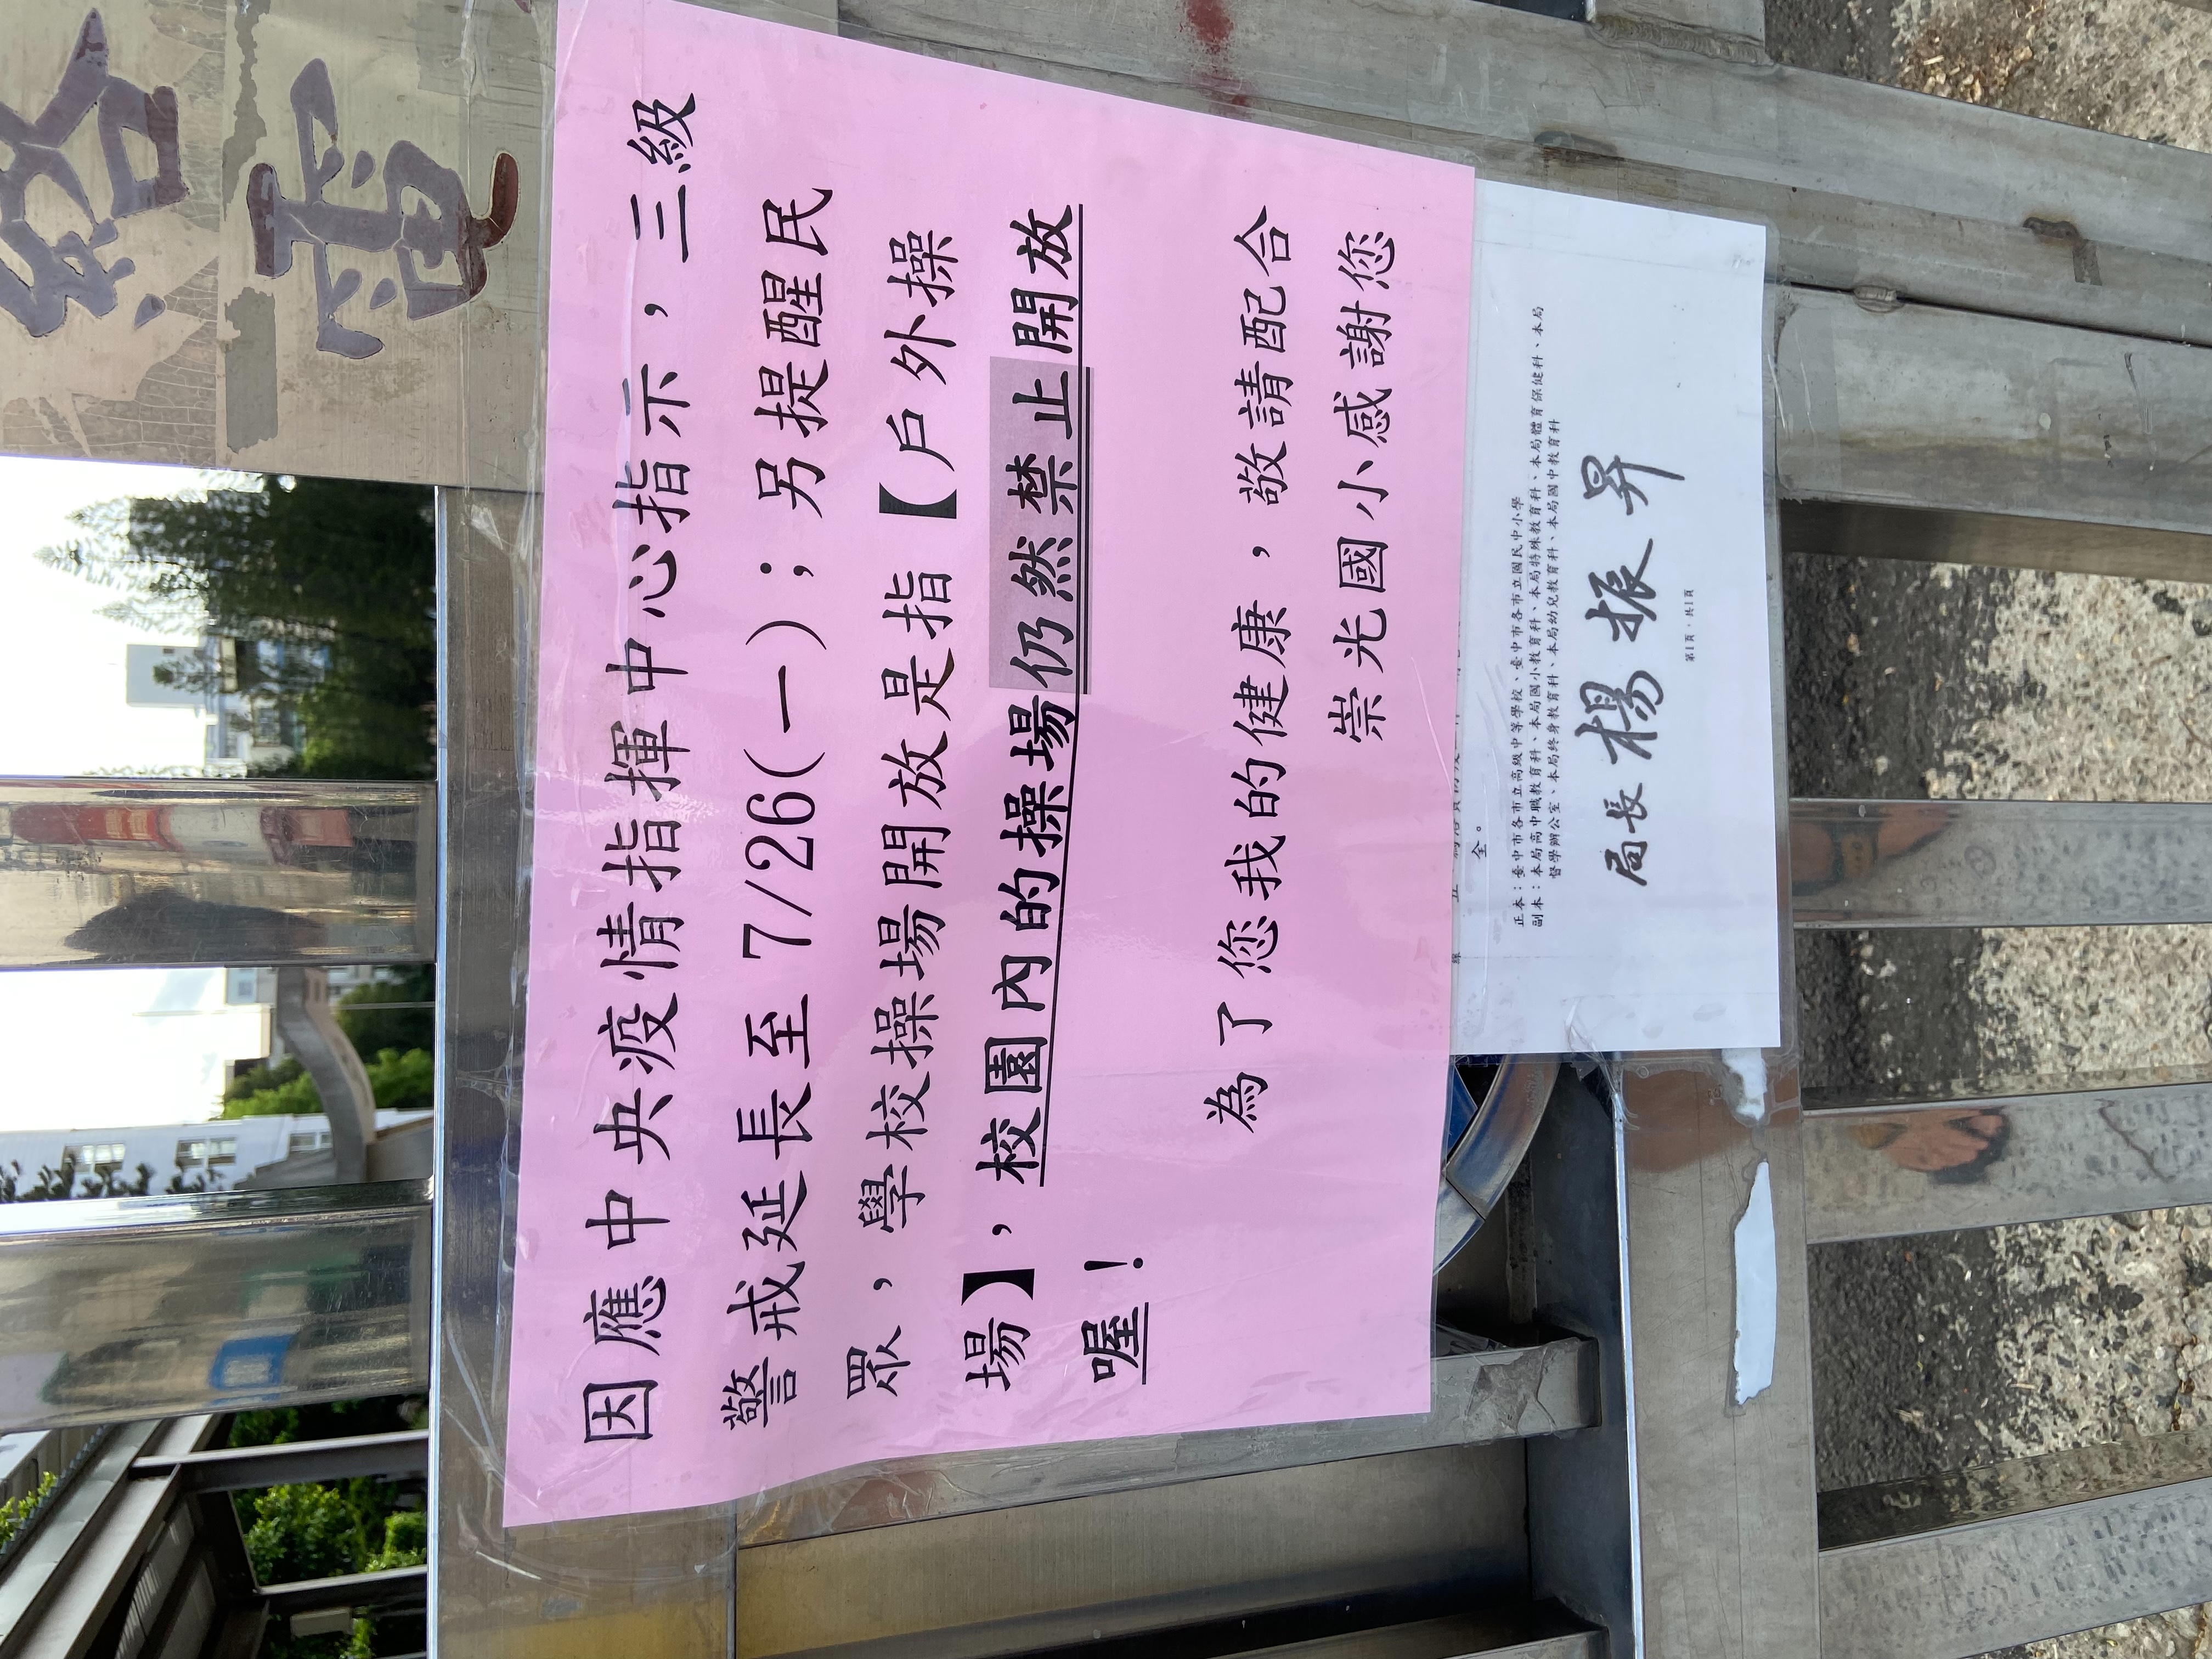 因應中央疫情指揮中心指示，三級
警戒延長至 7/26(一)；另提醒民
眾，學校操場開放是指【戶外操
場】，校園內的操場仍然禁止開放
喔！
為了您我的健康，敬請配合
崇光國小感謝您
全。
正本：臺中市各市立高級中等學校、臺中市各市立國民中小學
副本：本局高中職教育科、本局國小教育科、本局特殊教育科、本局體育保健科、本局
督學辦公室、本局終身教育科、本局幼兒教育科、本局國中教育科
局長 楊振昇
第1頁，共1頁
線